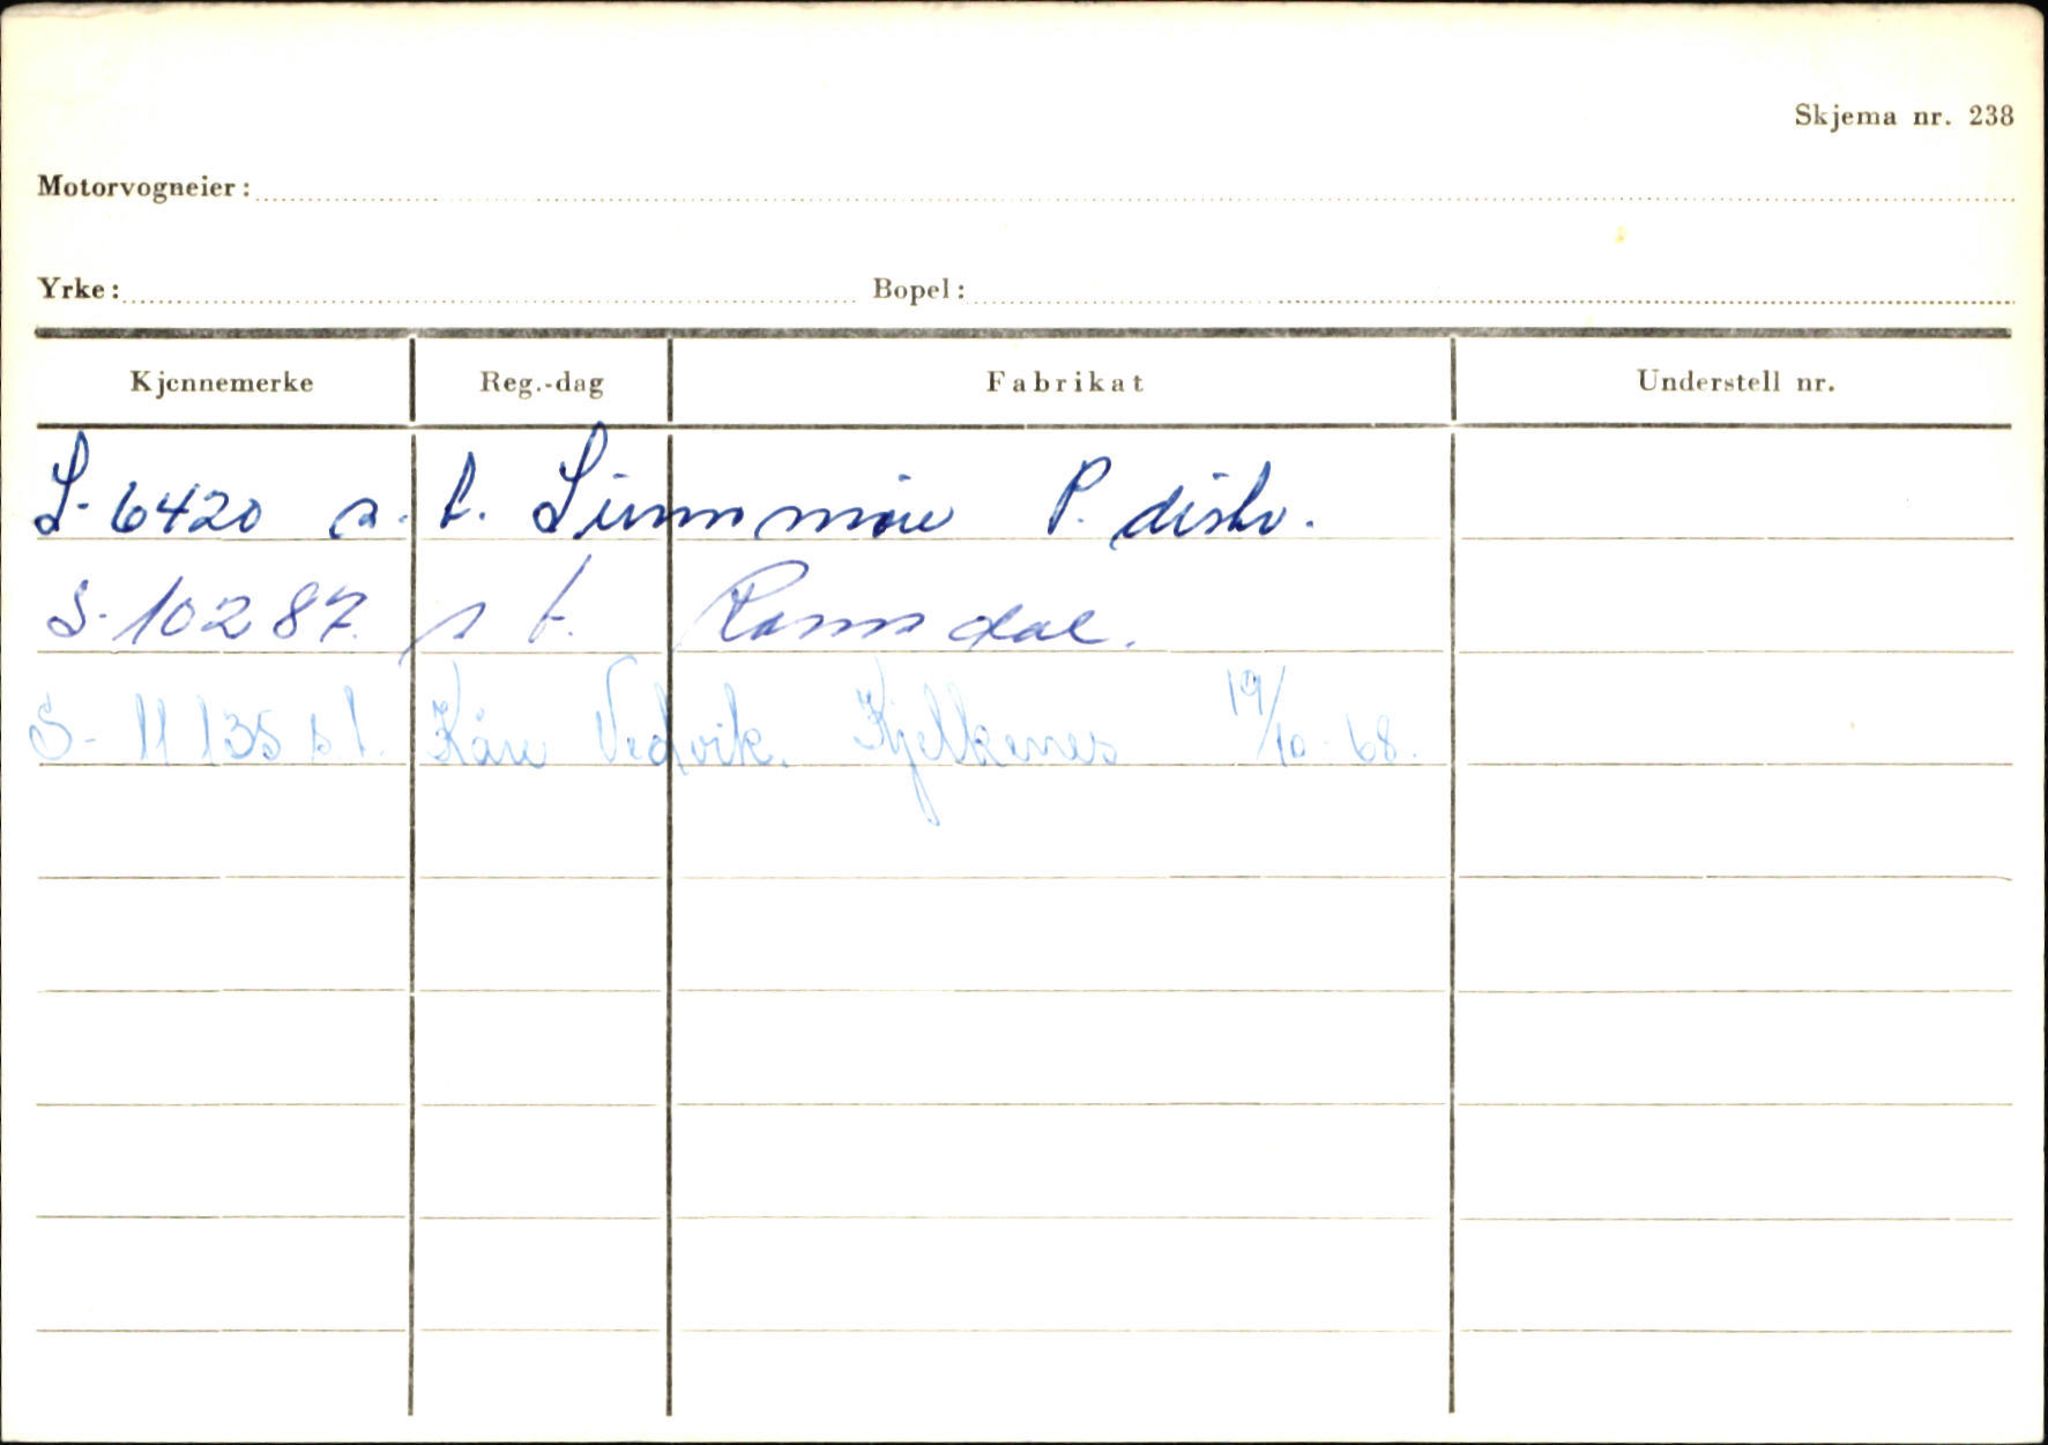 Skjema nr. 238
Motorvogneier:
Yrke: Bopel:
Kjennemerke Reg.-dag Fabrikat Understell nr.
S-6420 s. t. Sunnmøre P. distr.
S-10287. s t. Romsdal.
S-11135 s.t. Kåre Vedvik. Kjelkenes 19/10-68.